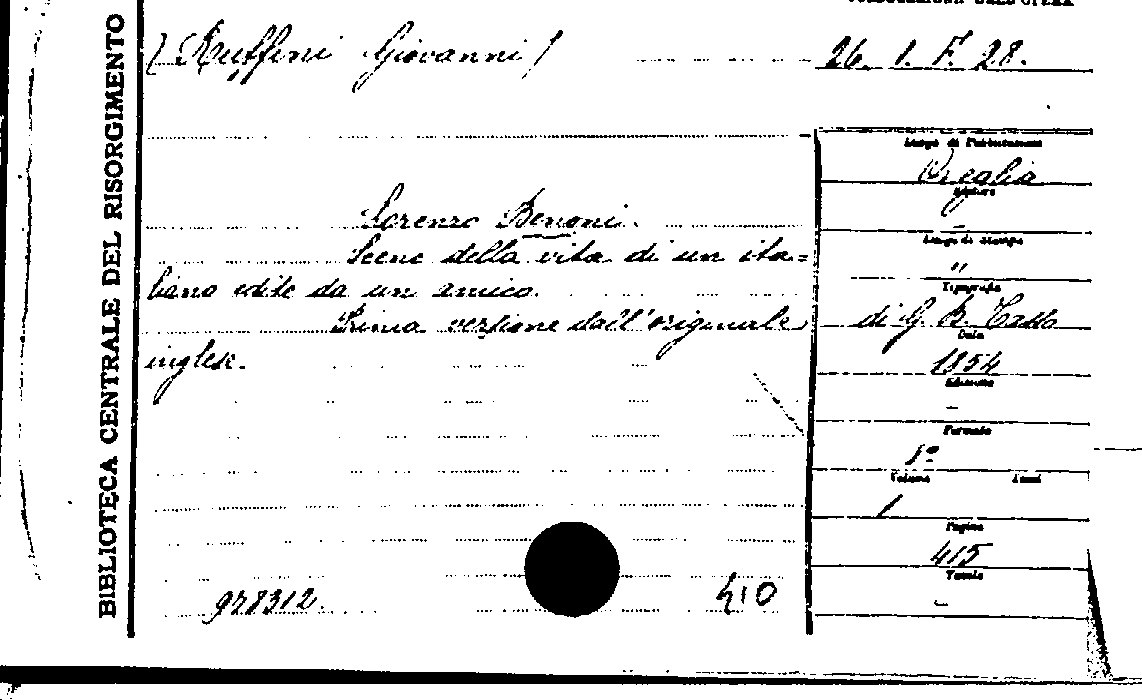 BIBLIOTECA CENTRALE DEL RISORGIMENTO
[Ruffini Giovanni]
26. 1. F. 28.
Lorenzo Benoni.
Scene della vita di un ita=
liano edite da un amico.
Prima versione dall'originale
inglese.
Luogo di Pubblicazione
Oneglia
Editore
-
Luogo di stampa
"
Tipografia
di G. B. Tasso
Data
1854
Edizione
-
Formato
8º
Volume
1
Pagine
415
Tavole
-
978312.
410